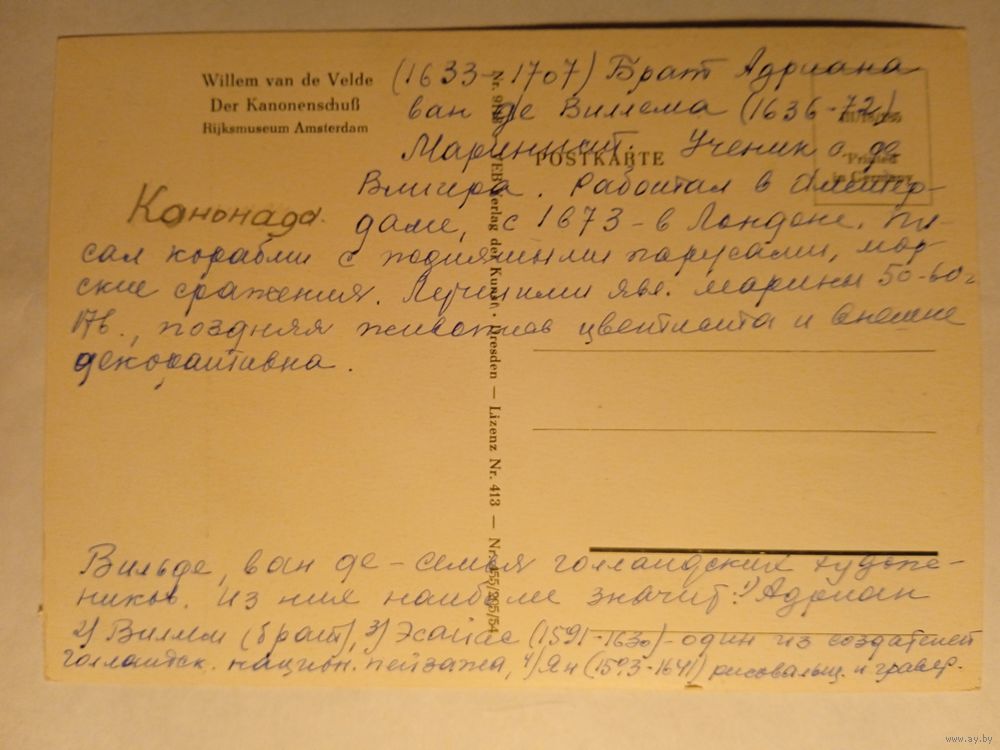 Willem van de Velde
Der Kanonenschuß
Rijksmuseum Amsterdam
(1633-1707) Брат Адриана
ван де Виллема (1636-72)
Маринист. Ученик С. де
Влигера. Работал в Амстер-
даме, с 1673 - в Лондоне. Пи-
сал корабли с поднятыми парусами, мор-
ские сражения. Лучшими явл. марины 50-60х
17в., поздняя живопись цветиста и внешне
декоративна.
Каньнада.
POSTKARTE
Printed
in Germany
VEB Verlag der Kunst · Dresden — Lizenz Nr. 413 — Nr. 455/205/54
Вильде, ван де - семья голландских худож-
ников. Из них наиболе значит: 1) Адриан
2) Виллем (брат), 3) Эсайас (1591-1630) - один из создателей
голландск. национ. пейзажа, 4) Ян (1593-1641) рисовальщ. и гравер.
www.ay.by